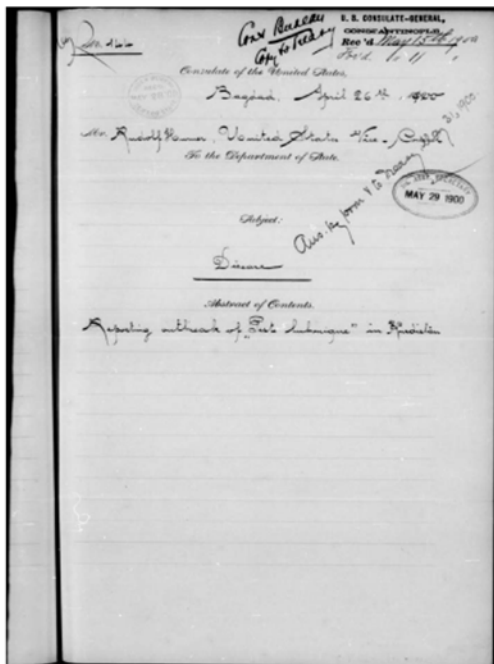 No. 466
Cons Bureau
Copy to Treasy
U. S. CONSULATE-GENERAL,
CONSTANTINOPLE
Rec'd May 15th 1900
Consulate of the United States,
Bagdad, April 26th, 1900
Mr. Rudolf Hurner, United States Vice-Consul
To the Department of State.
31, 1900.
MAY 29 1900
Subject:
Disease
Abstract of Contents.
Reporting outbreak of "Peste bubonique" in Kurdistan